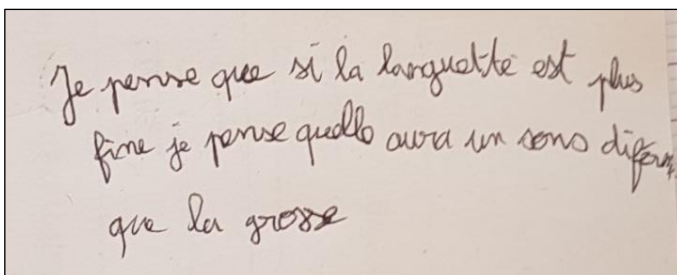 Je pense que si la languette est plus
fine je pense quelle aura un sons diferent
que la grosse